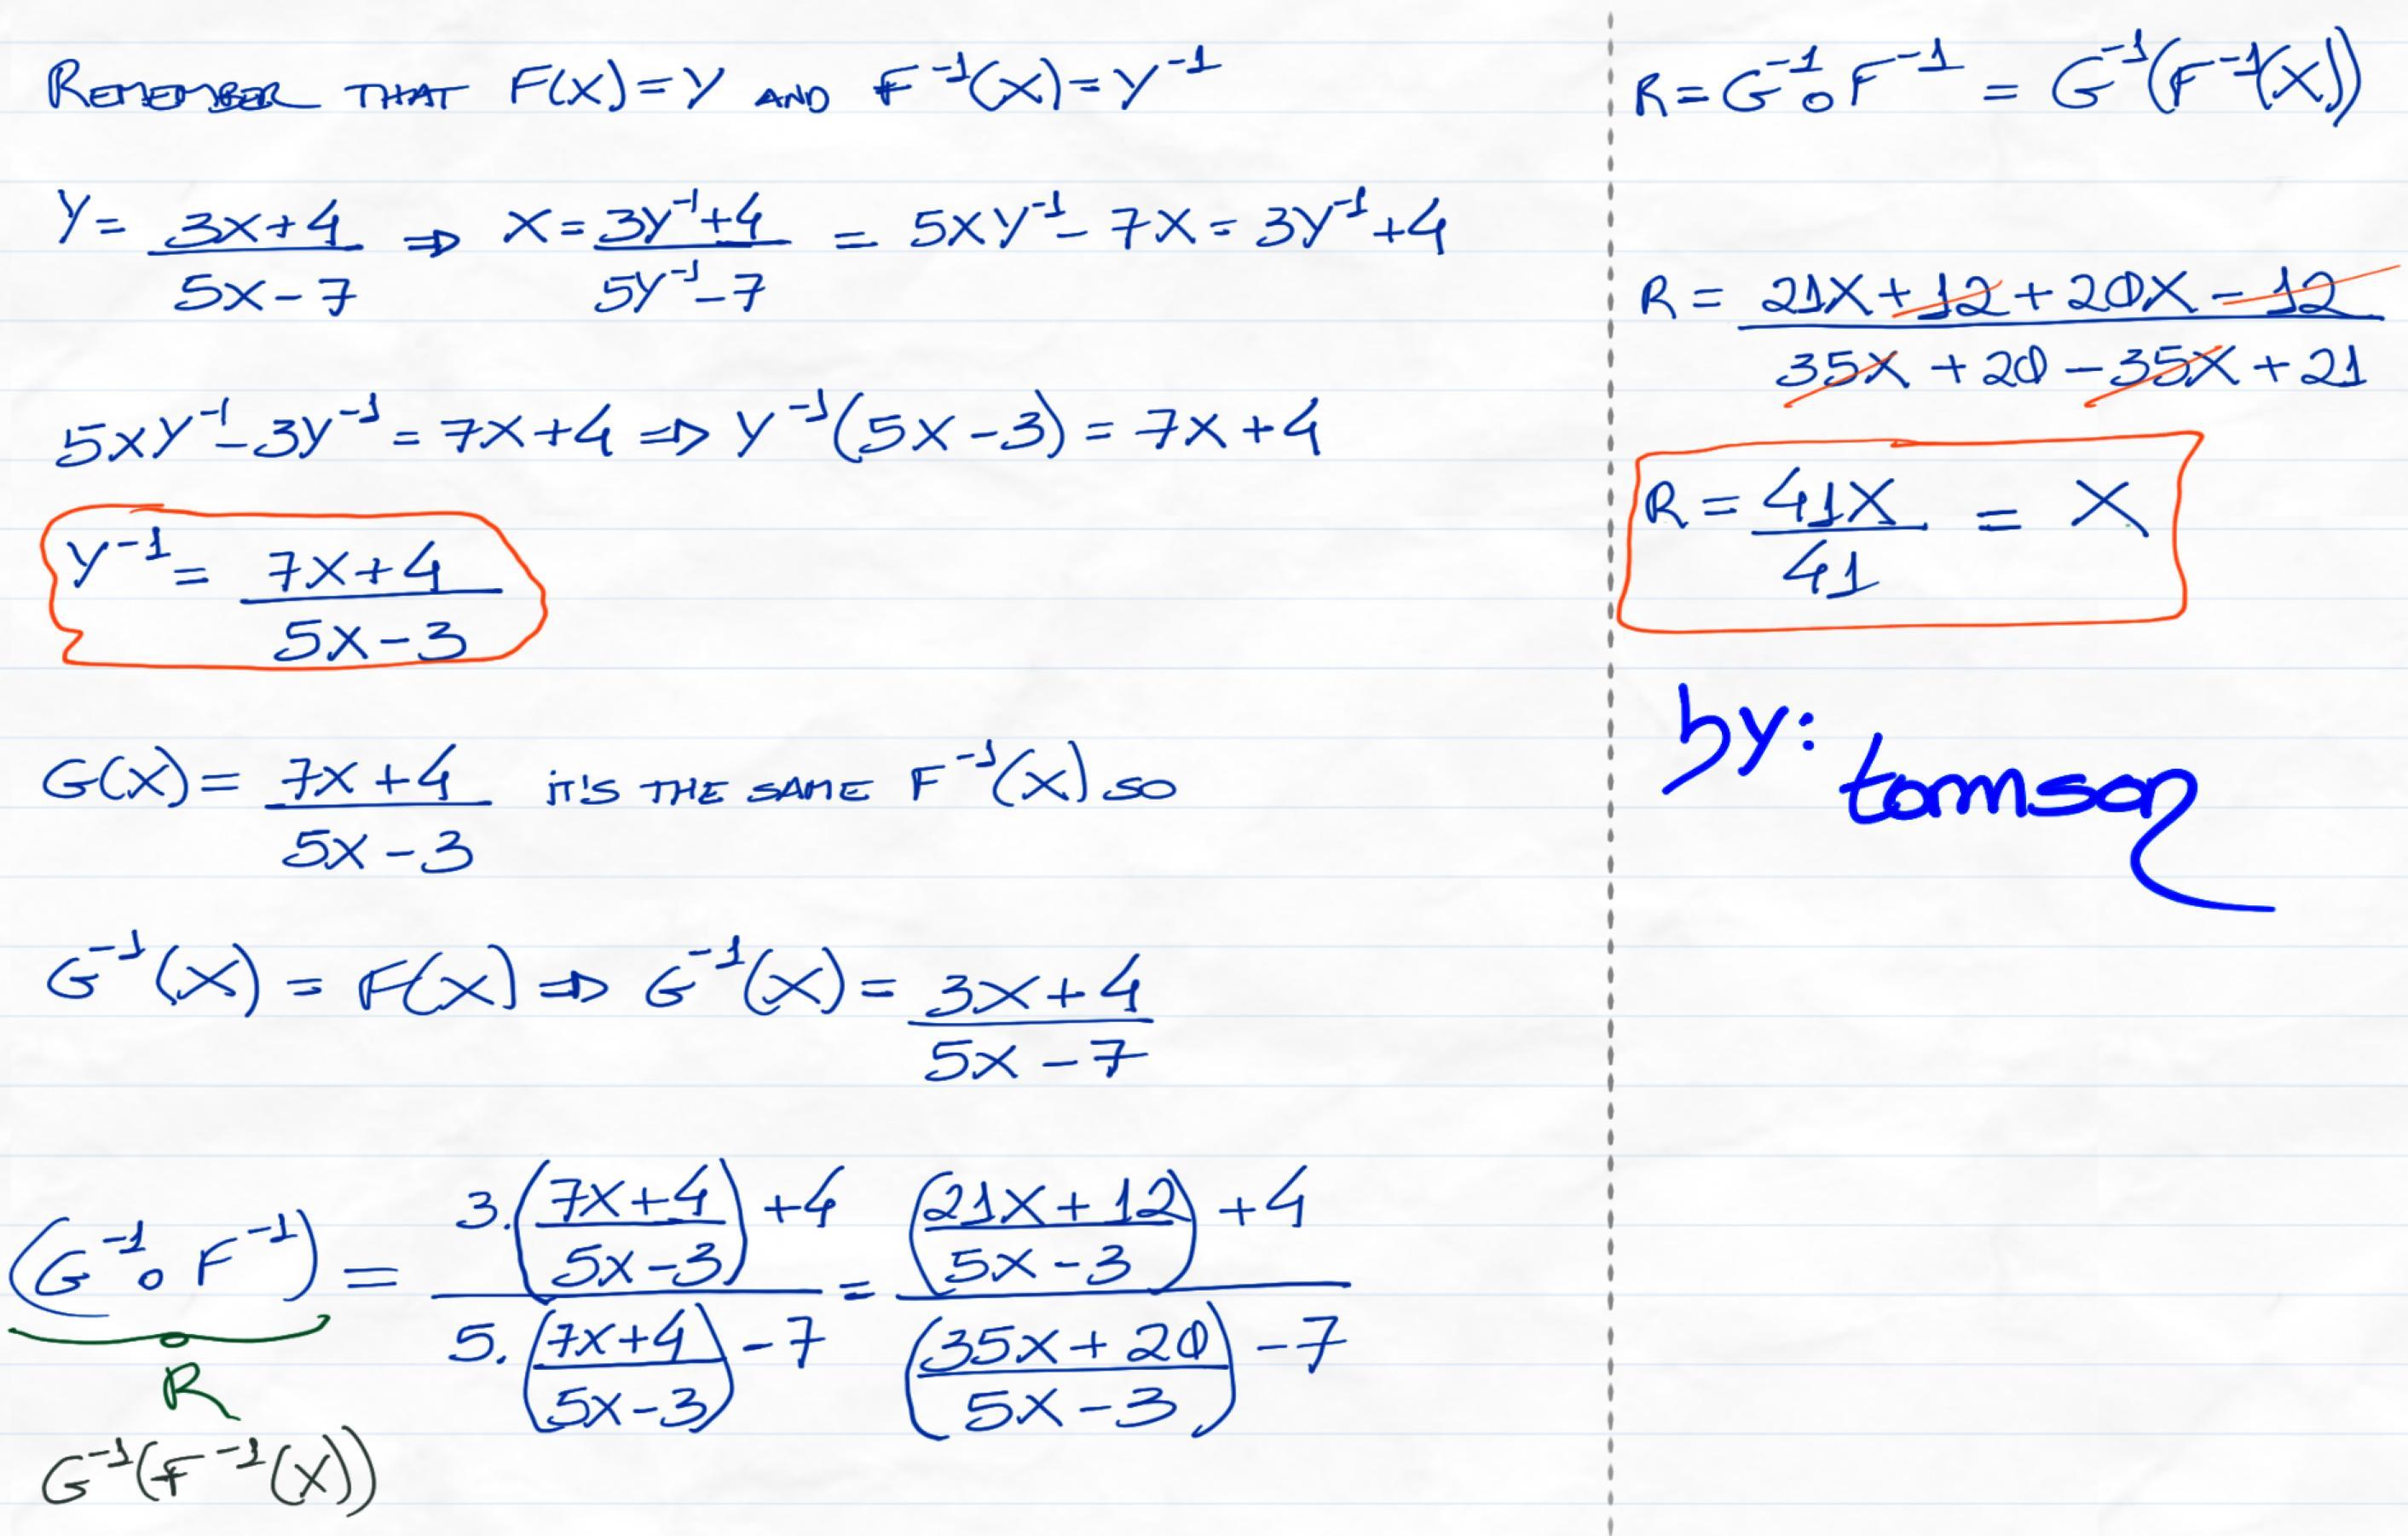 REMEMBER THAT F(X)=Y AND F⁻¹(X)=Y⁻¹
Y = (3X+4)/(5X-7) ⇒ X = (3Y⁻¹+4)/(5Y⁻¹-7) = 5XY⁻¹ - 7X = 3Y⁻¹+4
5XY⁻¹ - 3Y⁻¹ = 7X+4 ⇒ Y⁻¹(5X-3) = 7X+4
Y⁻¹ = (7X+4)/(5X-3)
G(X) = (7X+4)/(5X-3) iT'S THE SAME F⁻¹(X) SO
G⁻¹(X) = F(X) ⇒ G⁻¹(X) = (3X+4)/(5X-7)
(G⁻¹∘F⁻¹) = (3.((7X+4)/(5X-3))+4)/(5.((7X+4)/(5X-3))-7) = (((21X+12)/(5X-3))+4)/(((35X+20)/(5X-3))-7)
R
G⁻¹(F⁻¹(X))
R = G⁻¹∘F⁻¹ = G⁻¹(F⁻¹(X))
R = (21X+12+20X-12)/(35X+20-35X+21)
R = 41X/41 = X
by:
tomson